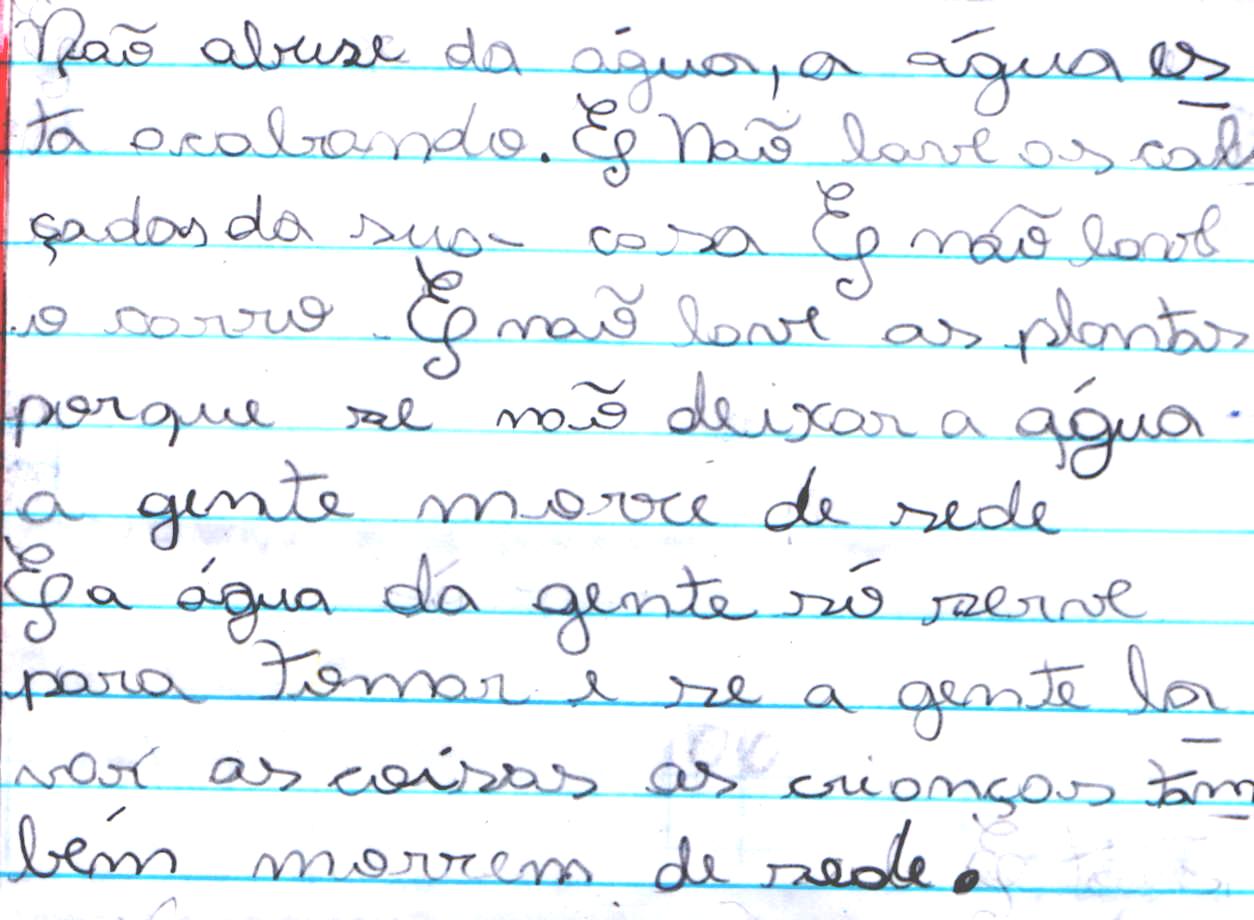 Não abuse da água, a água es
tá acabando. E Não lave as cal
çadas da sua casa E não lave
o carro E não lave as plantas
porque se não deixar a água
a gente morre de sede
E a água da gente só serve
para tomar e se a gente la
var as coisas as crianças tam
bém morrem de sede.